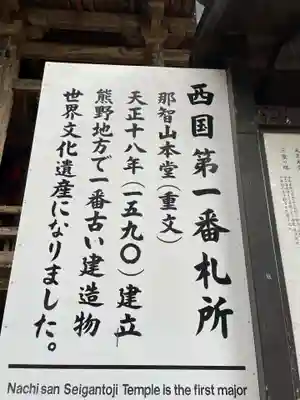 西国第一番札所
那智山本堂(重文)
天正十八年(一五九〇)建立
熊野地方で一番古い建造物
世界文化遺産になりました。
Nachisan Seigantoji Temple is the first major